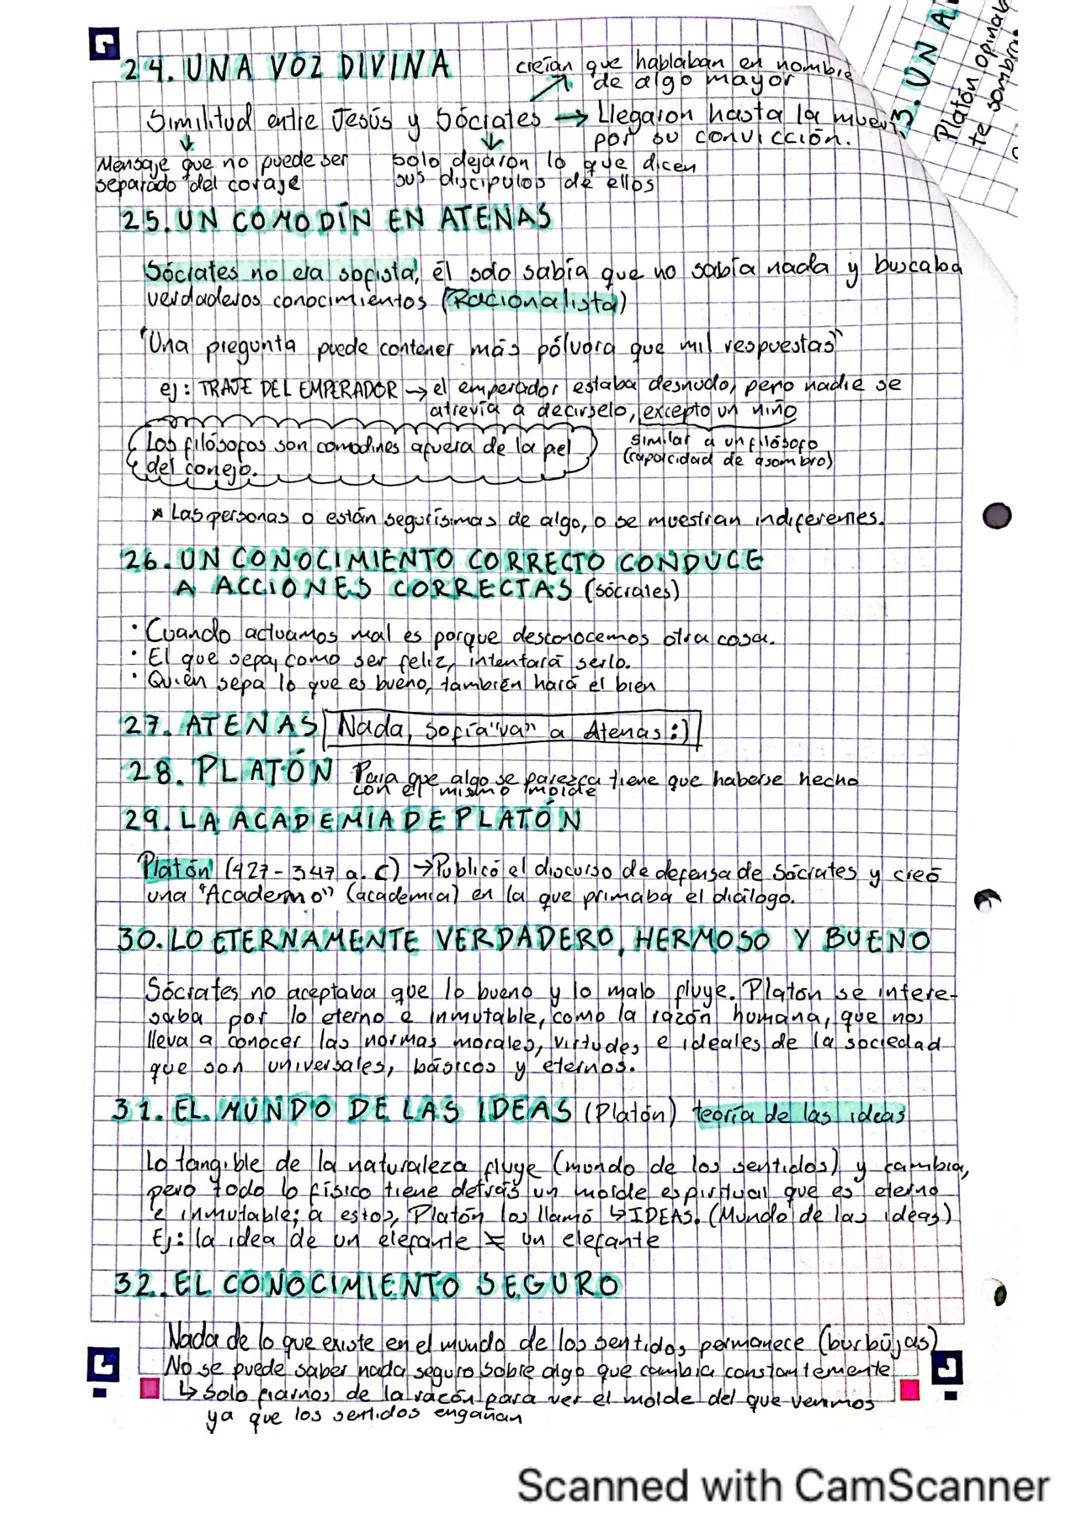 24. UNA VOZ DIVINA
creían que hablaban en nombre
de algo mayor
Similitud entre Jesús y Sócrates → Llegaron hasta la muerte
por su convicción.
Mensaje que no puede ser
separado del coraje
solo dejaron lo que dicen
sus discípulos de ellos
25. UN COMODÍN EN ATENAS
Sócrates no era sofista, él solo sabía que no sabía nada y buscaba
verdaderos conocimientos (Racionalista)
"Una pregunta puede contener más pólvora que mil respuestas"
ej: TRAJE DEL EMPERADOR → el emperador estaba desnudo, pero nadie se
atrevía a decirselo, excepto un niño
Los filósofos son comodines afuera de la piel
del conejo.
similar a un filósofo
(capacidad de asombro)
* Las personas o están segurísimas de algo, o se muestran indiferentes.
26. UN CONOCIMIENTO CORRECTO CONDUCE
A ACCIONES CORRECTAS (sócrates)
· Cuando actuamos mal es porque desconocemos otra cosa.
· El que sepa, como ser feliz, intentará serlo.
· Quién sepa lo que es bueno, también hará el bien
27. ATENAS Nada, Sofía "va" a Atenas :)
28. PLATÓN Para que algo se parezca tiene que haberse hecho
con el mismo molde
29. LA ACADEMIA DE PLATÓN
Platón (427-347 a. C) → Publicó el discurso de defensa de Sócrates y creó
una "Academo" (academia) en la que primaba el diálogo.
30. LO ETERNAMENTE VERDADERO, HERMOSO Y BUENO
Sócrates no aceptaba que lo bueno y lo malo fluye. Platón se intere-
saba por lo eterno e inmutable, como la razón humana, que nos
lleva a conocer las normas morales, virtudes e ideales de la sociedad
que son universales, básicos y eternos.
31. EL MUNDO DE LAS IDEAS (Platón) teoría de las ideas
Lo tangible de la naturaleza fluye (mundo de los sentidos) y cambia,
pero todo lo físico tiene detrás un molde espiritual que es eterno
e inmutable; a estos, Platón los llamó ↳ IDEAS. (Mundo de las ideas)
Ej: la idea de un elefante ≠ un elefante
32. EL CONOCIMIENTO SEGURO
Nada de lo que existe en el mundo de los sentidos permanece (burbujas)
No se puede saber nada seguro sobre algo que cambia constantemente
↳ Solo fiarnos de la razón para ver el molde del que venimos
ya que los sentidos engañan
3. UN A
Platón opinab
te sombra
Scanned with CamScanner